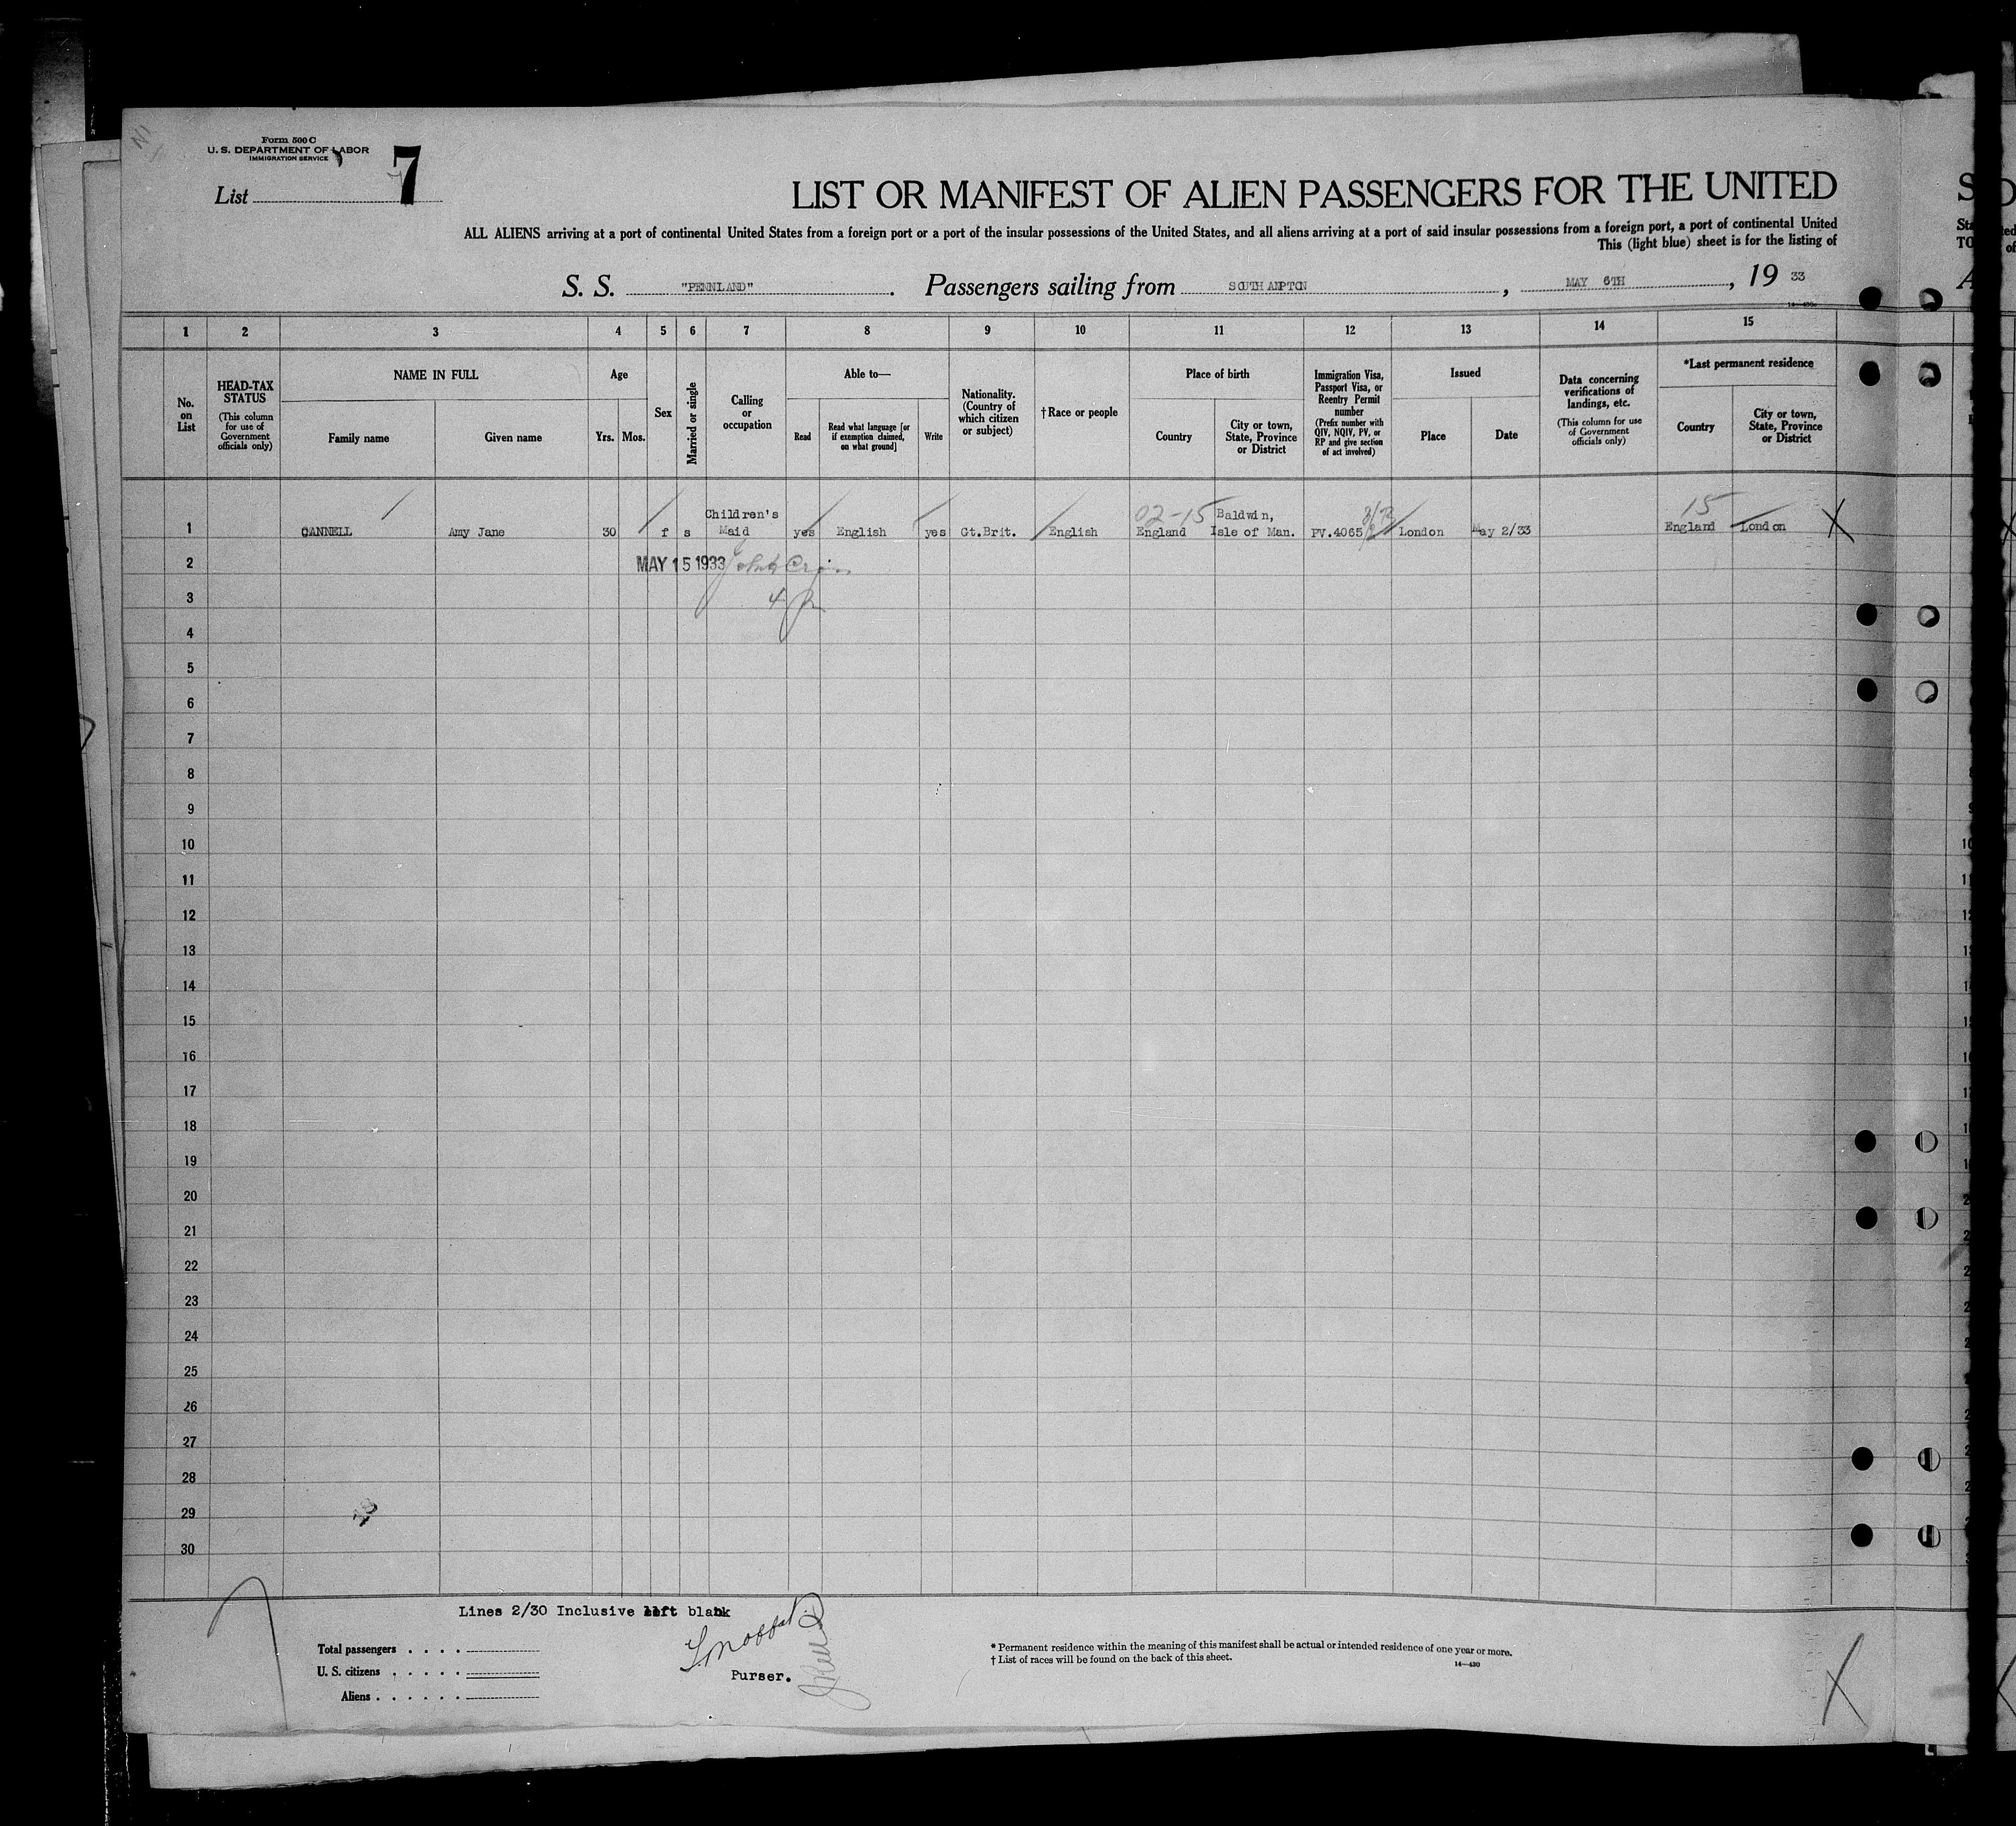 Form 500 C
U. S. DEPARTMENT OF LABOR
IMMIGRATION SERVICE
List 7
LIST OR MANIFEST OF ALIEN PASSENGERS FOR THE UNITED
ALL ALIENS arriving at a port of continental United States from a foreign port or a port of the insular possessions of the United States, and all aliens arriving at a port of said insular possessions from a foreign port, a port of continental United
This (light blue) sheet is for the listing of
S. S. "PENNLAND". Passengers sailing from SOUTHAMPTON, MAY 6TH, 19 33
1 2 3 4 5 6 7 8 9 10 11 12 13 14 15
No. on List
HEAD-TAX STATUS
(This column for use of Government officials only)
NAME IN FULL
Family name Given name
Age
Yrs. Mos.
Sex
Married or single
Calling or occupation
Able to—
Read
Read what language [or if exemption claimed, on what ground]
Write
Nationality. (Country of which citizen or subject)
†Race or people
Place of birth
Country
City or town, State, Province or District
Immigration Visa, Passport Visa, or Reentry Permit number
(Prefix number with QIV, NQIV, PV, or RP and give section of act involved)
Issued
Place Date
Data concerning verifications of landings, etc.
(This column for use of Government officials only)
*Last permanent residence
Country
City or town, State, Province or District
02-15 15
Children's Baldwin,
1 CANNELL Amy Jane 30 f s Maid yes English yes Gt.Brit. English England Isle of Man. PV.4065 London May 2/33 England London
2 MAY 15 1933
3
4
5
6
7
8
9
10
11
12
13
14
15
16
17
18
19
20
21
22
23
24
25
26
27
28
29
30
Lines 2/30 Inclusive left blank
Total passengers . . . .
U. S. citizens . . . . .
Aliens . . . . . .
Purser.
* Permanent residence within the meaning of this manifest shall be actual or intended residence of one year or more.
† List of races will be found on the back of this sheet.
14—430